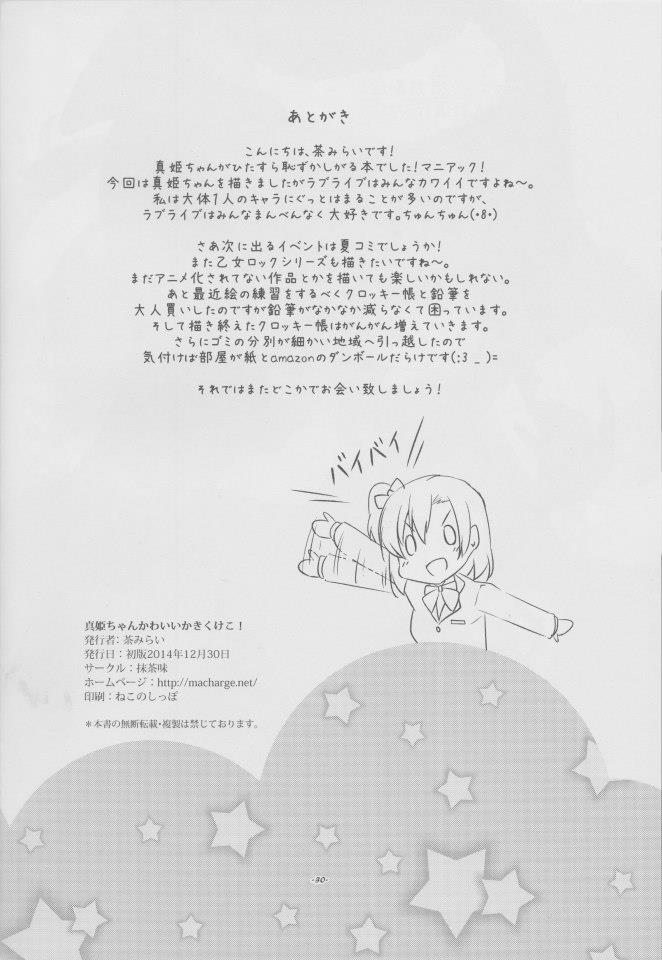 あとがき
こんにちは、茶みらいです！
真姫ちゃんがひたすら恥ずかしがる本でした！マニアック！
今回は真姫ちゃんを描きましたがラブライブはみんなカワイイですよね〜。
私は大体1人のキャラにぐっとはまることが多いのですが、
ラブライブはみんなまんべんなく大好きです。ちゅんちゅん(・8・)
さあ次に出るイベントは夏コミでしょうか！
また乙女ロックシリーズも描きたいですね〜。
まだアニメ化されてない作品とかを描いても楽しいかもしれない。
あと最近絵の練習をするべくクロッキー帳と鉛筆を
大人買いしたのですが鉛筆がなかなか減らなくて困っています。
そして描き終えたクロッキー帳はがんがん増えていきます。
さらにゴミの分別が細かい地域へ引っ越したので
気付けば部屋が紙とamazonのダンボールだらけです(:3 _ )=
それではまたどこかでお会い致しましょう！
バイバイ
真姫ちゃんかわいいかきくけこ！
発行者：茶みらい
発行日：初版2014年12月30日
サークル：抹茶味
ホームページ：http://macharge.net/
印刷：ねこのしっぽ
＊本書の無断転載・複製は禁じております。
-30-